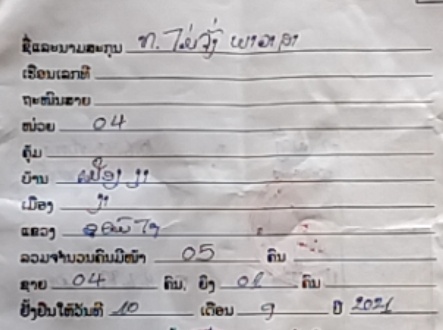 ຊື່ແລະນາມສະກຸນ ທ.
ເຮືອນເລກທີ
ຖະໜົນສາຍ
ໜ່ວຍ 04
ຄຸ້ມ
ບ້ານ
ເມືອງ ງາ
ແຂວງ ອຸດົມໄຊ
ລວມຈຳນວນຄົນມີໜ້າ 05 ຄົນ
ຊາຍ 04 ຄົນ, ຍິງ 01 ຄົນ
ຢັ້ງຢືນໃຫ້ວັນທີ 10 ເດືອນ 9 ປີ 2021